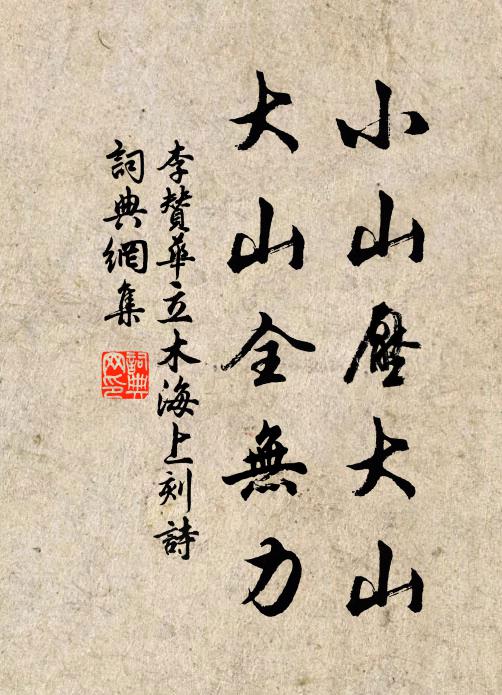 小山壓大山
大山全無力
李贊華立木海上刻詩
詞典網集
詞典
网印